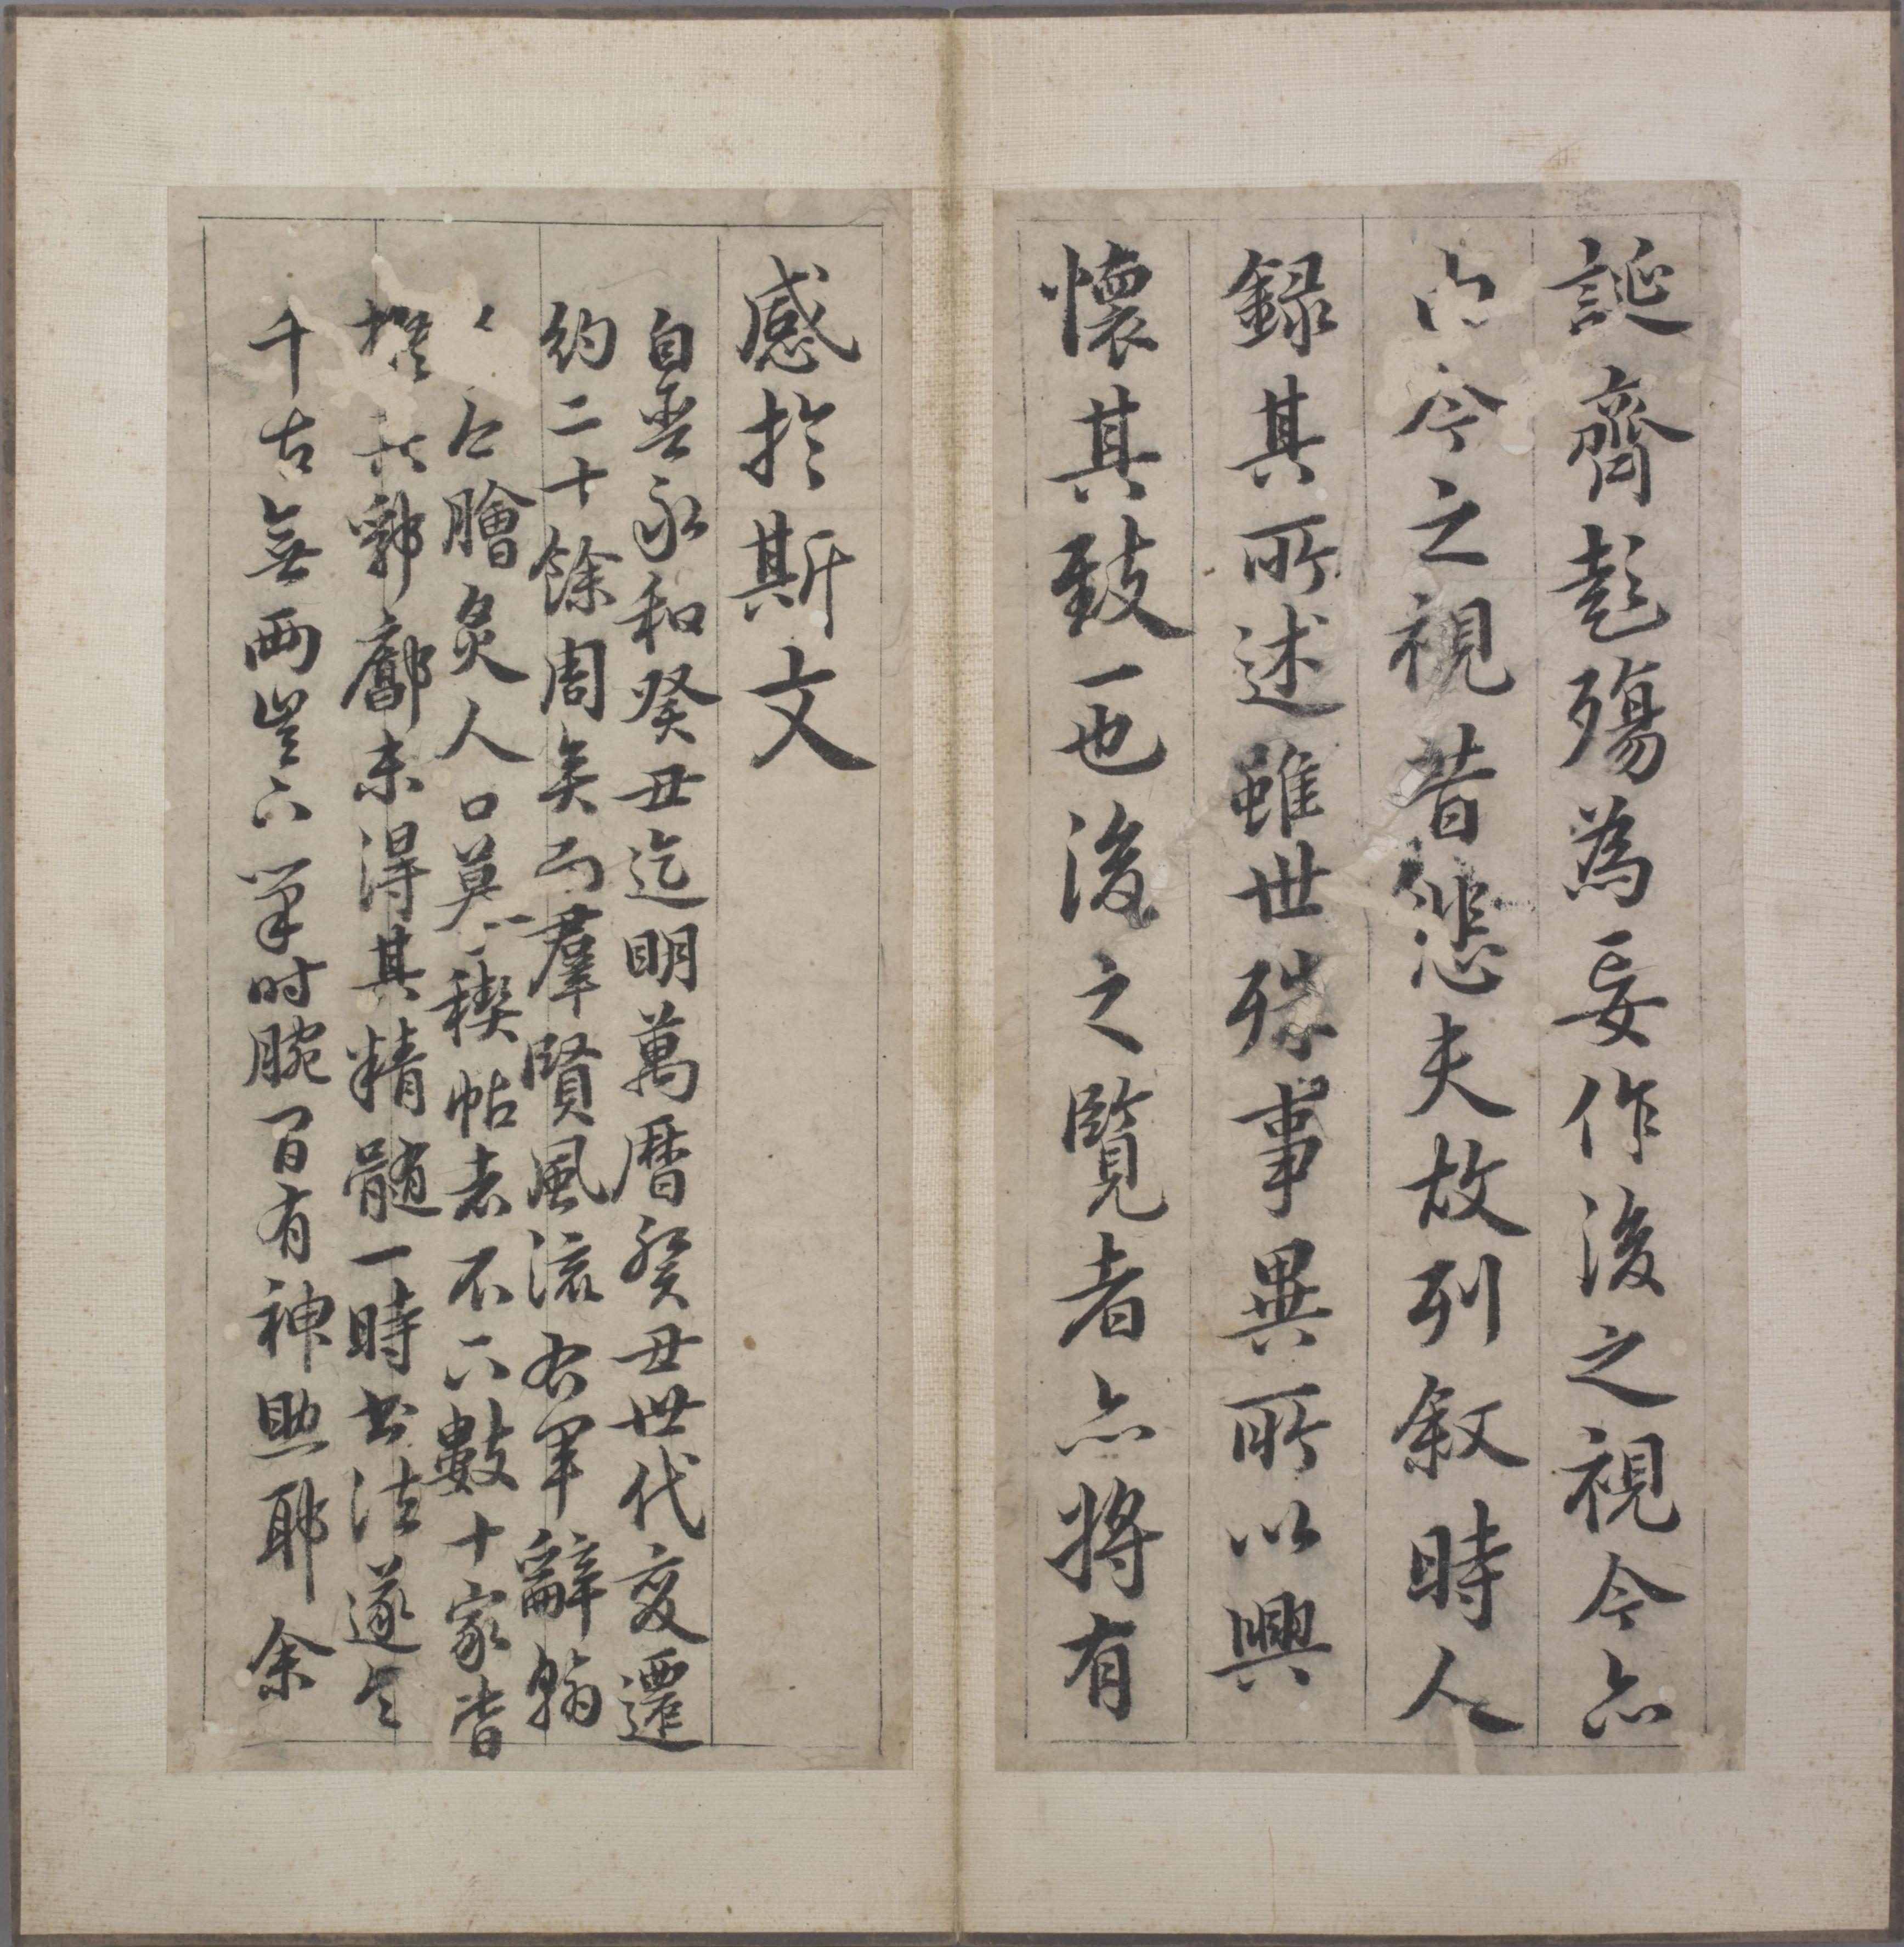 誕齊彭殤為妄作後之視今亦
由今之視昔悲夫故列叙時人
録其所述雖世殊事異所以興
懷其致一也後之覽者亦將有
感於斯文
自晉永和癸丑迄明萬曆癸丑世代變遷
約二十餘周矣而羣賢風流右軍辭翰
今膾炙人口摹稧帖者不下數十家皆
於郛廓未得其精髓一時書法遂令
千古無兩豈下筆時腕間有神照耶余